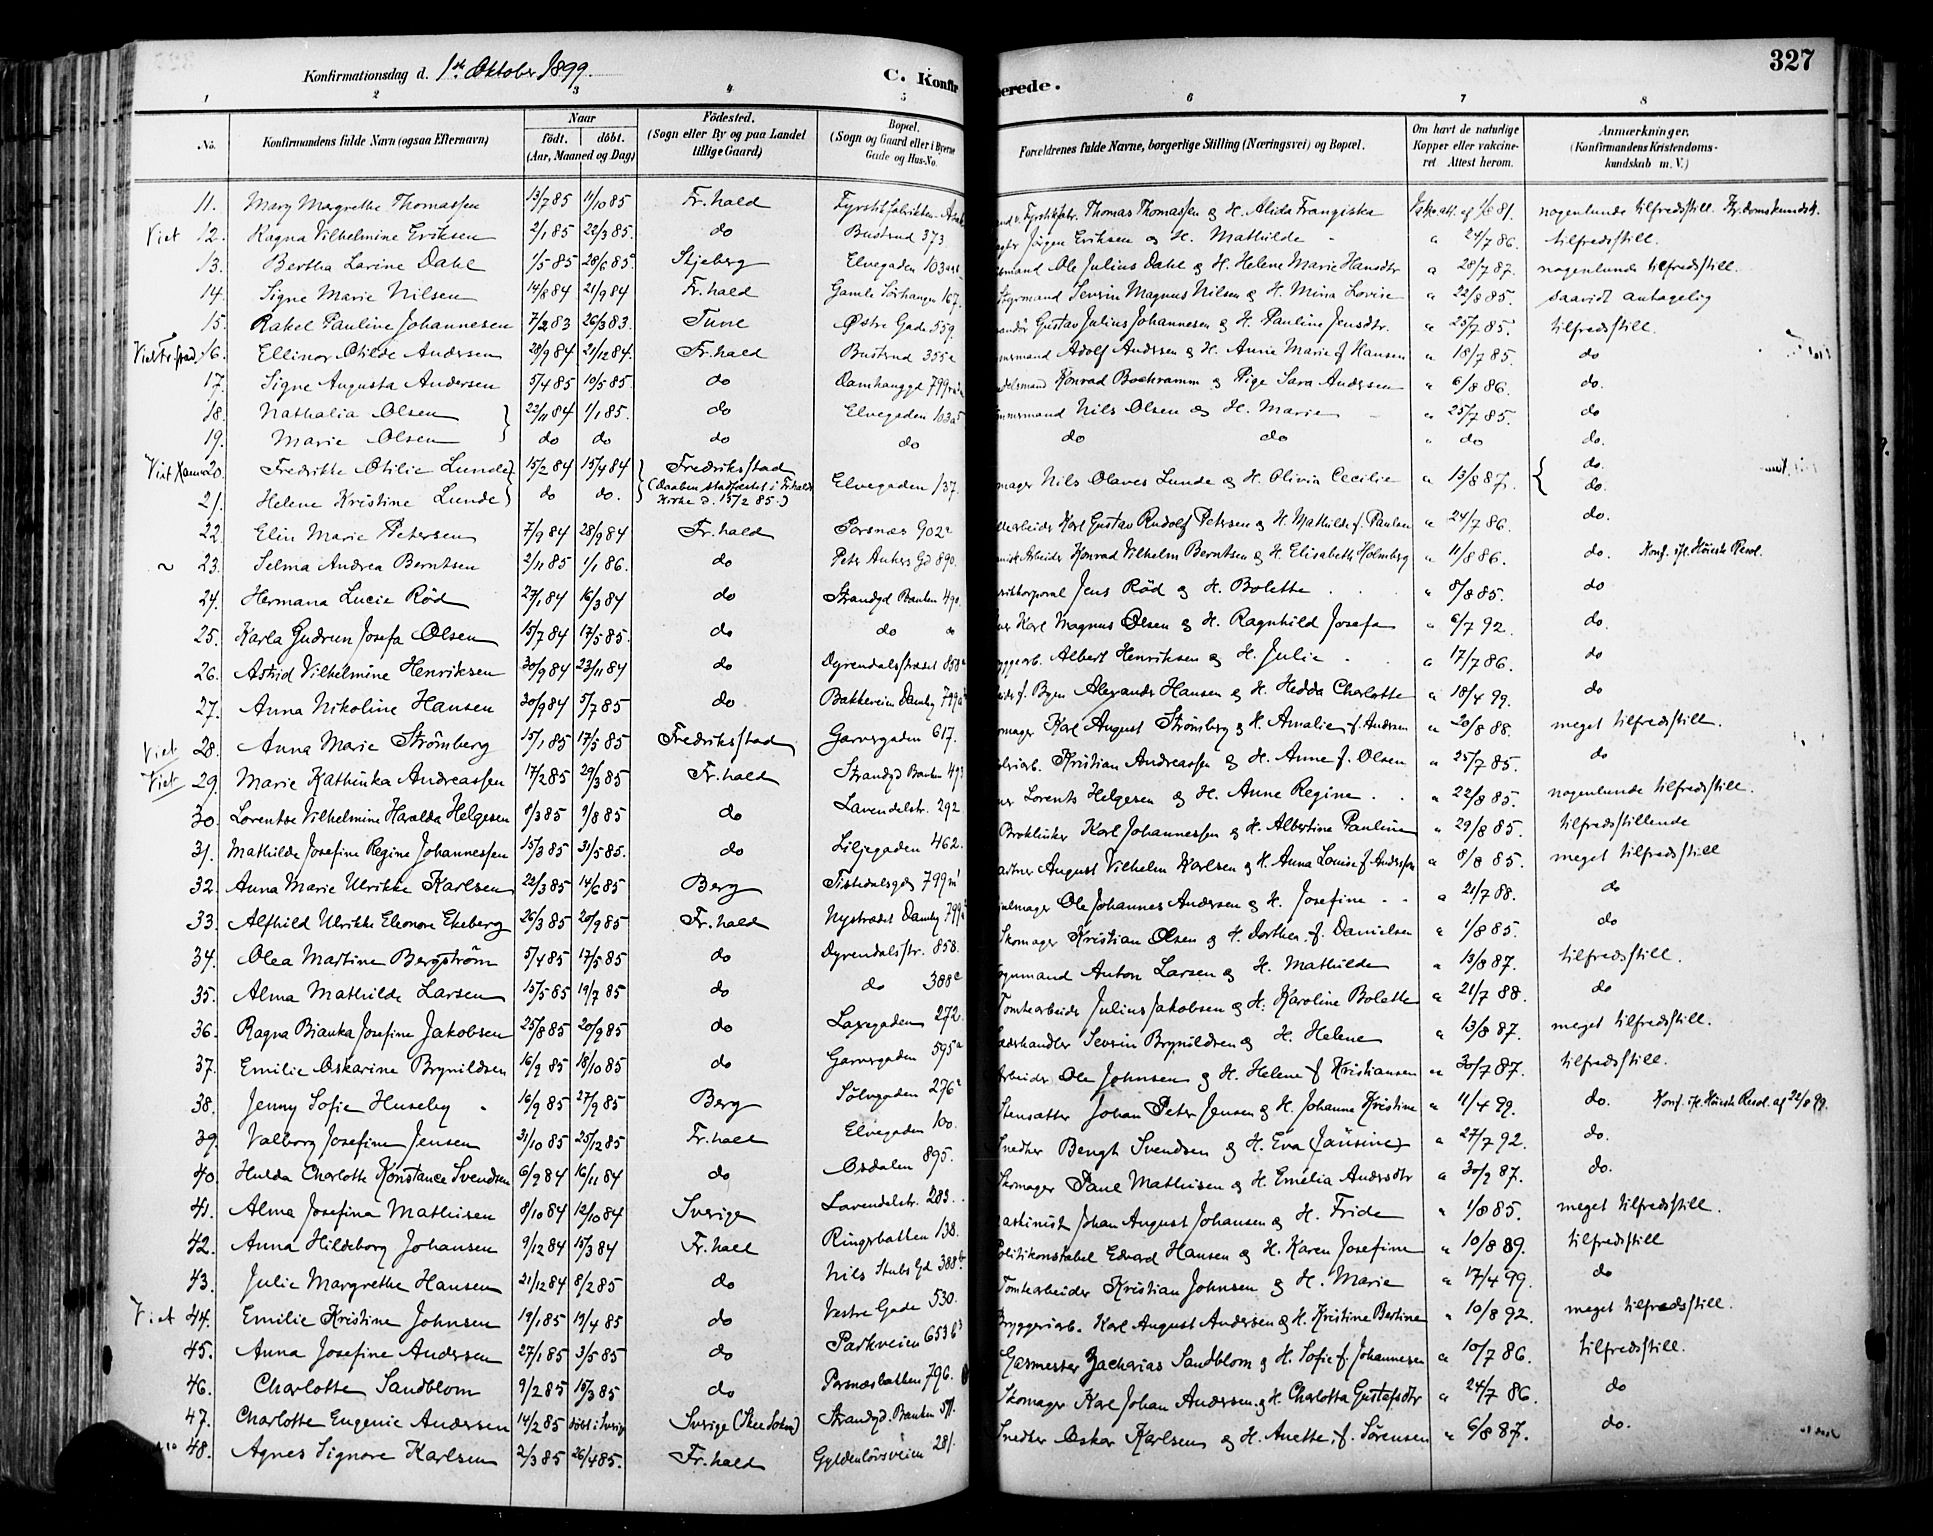 327
Konfirmationsdag d. 1ste Oktober 1899.
C. Konfir
erede.
1 2 3 4 5 6 7 8
No. Konfirmandens fulde Navn (ogsaa Efternavn) Naar födt. döbt. (Aar, Maaned og Dag) Födested. (Sogn eller By og paa Landet tillige Gaard) Bopæl. (Sogn og Gaard eller i Byerne Gade og Hus-No. Forældrenes fulde Navne, borgerlige Stilling (Næringsvei) og Bopæl. Om havt de naturlige Kopper eller vakcineret Attest herom. Anmærkninger. (Konfirmandens Kristendomskundskab m. V.)
11. Mary Margrethe Thomassen 13/7 85 11/10 85 Fr.hald Thomas Thomassen & H. Alida Franziska nogenlunde tilfredsstill.
Viet 12. Ragna Vilhelmine Eriksen 2/1 85 22/3 85. do Bustrud 373 Jörgen Eriksen & H. Mathilde " 24/7 86. tilfredsstill.
13. Bertha Larine Dahl 1/5 85 28/6 85. Skjeberg Elvegaden Ole Julius Dahl & H. Helene Marie Hansdtr " 28/7 87. nogenlunde tilfredsstill.
14. Signe Marie Nilsen 14/8 84 21/9 84 Fr.hald Gamle 167. Styrmand Severin Magnus Nilsen & H. Mina Lovise " 22/8 85. saavidt antagelig
15. Rakel Pauline Johannesen 7/2 83 26/3 83. Tune Østre Gade 559. Gustav Julius Johannesen & H. Pauline Jensdtr. " 25/7 85. tilfredsstill.
16. Ellinor Otilde Andersen 28/9 84 21/12 84. Fr.hald Bustrud 355a Adolf Andersen & H. Anne Marie f. Hansen " 18/7 85. do
17. Signe Augusta Andersen 5/4 85 10/5 85. do Konrad Bochramm & Pige Sara Andersen " 6/8 86. do.
18. Nathalia Olsen 22/11 84 1/1 85. do Elvegaden Nils Olsen & H. Marie " 25/7 85. do
19. Marie Olsen do do do do do do " do do.
20. Fredrikke Otilie Lunde 15/2 84 15/4 84 Fredriksstad (Daaben stadfæstet i Fr.halds Kirke d. 15/2 85.) Elvegaden 137. Nils Olaves Lunde & H. Olivia Cecilie " 13/8 87. do.
21. Helene Kristine Lunde do do. do.
22. Elin Marie Petersen 7/9 84 28/9 84 Fr.hald Porsnæs 902a Karl Gustav Rudolf Petersen & H. Mathilde f. Paulsen " 24/7 86. do.
23. Selma Andrea Berntsen 2/11 85 1/1 86. do Peter Ankers Gd 890. Konrad Vilhelm Berntsen & H. Elisabeth Holmberg " 11/8 86. do. Konf. ifl. Höieste Resol.
24. Hermana Lucie Rød 27/1 84 16/3 84 do Strandgd Banken 490. Jens Rød & H. Bolette " 8/8 85. do
25. Karla Gudrun Josefa Olsen 15/7 84 17/5 85. do do do Karl Magnus Olsen & H. Ragnhild Josefa " 6/7 92. do.
26. Astrid Vilhelmine Henriksen 30/9 84 23/11 84 do Dyrendalsstrædet Albert Henriksen & H. Julie " 17/7 86. do
27. Anna Nikoline Hansen 30/9 84 5/7 85 do Bakkeveien Damhg Alexander Hansen & H. Hedda Charlotte " 18/4 99. do
Viet 28. Anna Marie Strömberg 15/1 85 17/5 85 Fredriksstad Garvergaden 617. Karl August Strömberg & H. Amalie f. Andersen " 20/8 88. meget tilfredsstill.
Viet 29. Marie Kathinka Andreassen 17/2 85 29/3 85 Fr.hald Strandgd Banken Kristian Andreassen & H. Anne f. Olsen " 25/7 85. do
30. Lorentse Vilhelmine Haralda Helgesen 8/3 85 9/8 85 do Lavendelstr. 292 Lorents Helgesen & H. Anne Regine " 22/8 85. nogenlunde tilfredsstill.
31. Mathilde Josefine Regine Johannessen 15/3 85 31/5 85. do Liljegaden 462. Karl Johannessen & H. Albertine Pauline " 29/8 85. tilfredsstillende
32. Anna Marie Ulrikke Karlsen 22/3 85 14/6 85 Berg Tistedalsgdg August Vilhelm Karlsen & H. Anna Louise f. Andersen " 8/8 85. meget tilfredsstill
33. Alfhild Ulrikke Eleonore Ekeberg 26/3 85 20/9 85 Fr.hald Nystrædet Damhg Ole Johannes Andersen & H. Josefine " 21/7 88. do
34. Olea Martine Bergström 5/4 85 17/5 85 do Dyrendalsstr. 858. Skomager Kristian Olsen & H. Dorthea f. Danielsen " 1/8 85. do
35. Alma Mathilde Larsen 15/5 85 19/7 85 do do 388c Anton Larsen & H. Mathilde " 13/8 87. tilfredsstill.
36. Ragna Bianka Josefine Jakobsen 25/8 85 20/9 85 do 272. Tomtearbeider Julius Jakobsen & H. Karoline Bolette " 21/7 88. do
37. Emilie Oskarine Brynildsen 16/9 85 18/10 85 do Garvergaden 595a Severin Brynildsen & H. Helene " 13/8 87. meget tilfredsstill.
38. Jenny Sofie Huseby 16/9 85 27/9 85 Berg Sölvgaden 276 Arbeider Ole Johnsen & H. Helene f. Kristiansen " 30/7 87. tilfredsstill.
39. Valborg Josefine Jensen 31/10 85 25/12 85 Fr.hald Elvegaden 100. Stensætter Johan Peter Jensen & H. Johanne Kristine " 11/4 99. do. Konf. ifl. Höieste Resol. af 22/8 99.
40. Hulda Charlotte Konstance Svendsen 6/9 84 16/11 84 do Osdalen 895. Snedker Bengt Svendsen & H. Eva (Jausine) " 27/7 92. do.
41. Alma Josefina Mathisen 8/10 84 12/10 84 Sverige Lavendelstr. 283. Skomager Paul Mathisen & H. Emelia Andersdtr " 30/7 87. do.
42. Anna Hildeborg Johansen 9/12 84 15/3 84 Fr.hald Ringsbakken 138. Maskinist Johan August Johansen & H. Frida " 1/8 85. meget tilfredsstill.
43. Julie Margrethe Hansen 21/12 84 8/2 85 do Nils Stubs Gd Politikonstabel Edvard Hansen & H. Karen Josefine " 10/8 89. tilfredsstill
Viet 44. Emilie Kristine Johnsen 19/1 85 19/4 85 do Vestre Gade 530. Tomtearbeider Kristian Johnsen & H. Marie " 17/4 99. do
45. Anna Josefine Andersen 27/1 85 3/5 85 do Parkveien Bryggeriarb. Karl August Andersen & H. Kristine Bertine " 10/8 92. meget tilfredsstill.
46. Charlotte Sandblom 9/2 85 15/3 85 do Porsnæsbakken 796. Gasmester Zacharias Sandblom & H. Sofie f. Johannesen " 10/7 86. tilfredsstill.
47. Charlotte Eugenie Andersen 14/2 85 döbt i Sverige Sverige (Skee Sokn) Strandgd. Banken Skomager Karl Johan Andersen & H. Charlotta Gustafsdtr " 24/7 86. do
48. Agnes Signore Karlsen 2/3 85 26/4 85. Fr.hald Gyldenlövsveien 281. Snedker Oskar Karlsen & H. Anette f. Sörensen " 6/8 87. do.